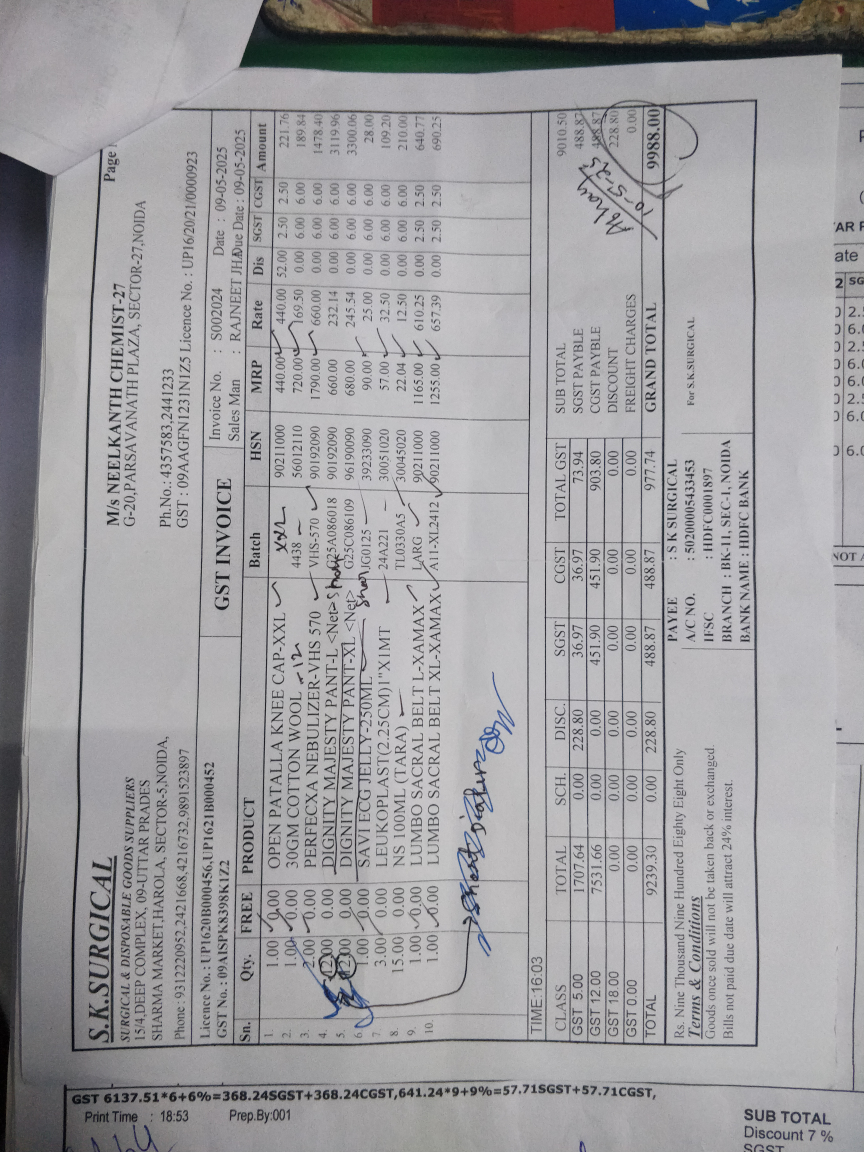 S.K.SURGICAL
SURGICAL & DISPOSABLE GOODS SUPPLIERS
15/4,DEEP COMPLEX, 09-UTTAR PRADES
SHARMA MARKET,HAROLA, SECTOR-5,NOIDA,
Phone : 9312220952,2421668,4216732,9891523897
M/s NEELKANTH CHEMIST-27
G-20,PARSAVANATH PLAZA, SECTOR-27,NOIDA
Ph.No.: 4357583,2441233
GST : 09AAGFN1231N1Z5 Licence No. : UP16/20/21/0000923
Page
Licence No.: UP1620B000456,UP1621B000452
GST No. : 09AISPK8398K1Z2
GST INVOICE
Invoice No. : S002024 Date : 09-05-2025
Sales Man : RAJNEET JHA Due Date : 09-05-2025
Sn. Qty. FREE PRODUCT Batch HSN MRP Rate Dis SGST CGST Amount
1. 1.00 0.00 OPEN PATALLA KNEE CAP-XXL XXL 90211000 440.00 440.00 52.00 2.50 2.50 221.76
2. 1.00 0.00 30GM COTTON WOOL -12 4438 56012110 720.00 169.50 0.00 6.00 6.00 189.84
3. 2.00 0.00 PERFECXA NEBULIZER-VHS 570 VHS-570 90192090 1790.00 660.00 0.00 6.00 6.00 1478.40
4. 12.00 0.00 DIGNITY MAJESTY PANT-L <Net> Short G25A086018 90192090 660.00 232.14 0.00 6.00 6.00 3119.96
5. 12.00 0.00 DIGNITY MAJESTY PANT-XL <Net> Short G25C086109 96190090 680.00 245.54 0.00 6.00 6.00 3300.06
6. 1.00 0.00 SAVI ECG JELLY-250ML JG0125 39233090 90.00 25.00 0.00 6.00 6.00 28.00
7. 3.00 0.00 LEUKOPLAST(2.25CM)1"X1MT 24A221 30051020 57.00 32.50 0.00 6.00 6.00 109.20
8. 15.00 0.00 NS 100ML (TARA) TL0330A5 30045020 22.04 12.50 0.00 6.00 6.00 210.00
9. 1.00 0.00 LUMBO SACRAL BELT L-XAMAX LARG 90211000 1165.00 610.25 0.00 2.50 2.50 640.77
10. 1.00 0.00 LUMBO SACRAL BELT XL-XAMAX A11-XL2412 90211000 1255.00 657.39 0.00 2.50 2.50 690.25
TIME:16:03
CLASS TOTAL SCH. DISC. SGST CGST TOTAL GST
GST 5.00 1707.64 0.00 228.80 36.97 36.97 73.94
GST 12.00 7531.66 0.00 0.00 451.90 451.90 903.80
GST 18.00 0.00 0.00 0.00 0.00 0.00 0.00
GST 0.00 0.00 0.00 0.00 0.00 0.00 0.00
TOTAL 9239.30 0.00 228.80 488.87 488.87 977.74
SUB TOTAL 9010.50
SGST PAYBLE 488.87
CGST PAYBLE 488.87
DISCOUNT 228.80
FREIGHT CHARGES 0.00
GRAND TOTAL 9988.00
10-5-25
Rs. Nine Thousand Nine Hundred Eighty Eight Only
Terms & Conditions
Goods once sold will not be taken back or exchanged.
Bills not paid due date will attract 24% interest.
PAYEE : S K SURGICAL
A/C NO. : 50200005433453
IFSC : HDFC0001897
BRANCH : BK-11, SEC-1, NOIDA
BANK NAME : HDFC BANK
For S.K.SURGICAL
GST 6137.51*6+6%=368.24SGST+368.24CGST,641.24*9+9%=57.71SGST+57.71CGST,
Print Time : 18:53 Prep.By:001
SUB TOTAL
Discount 7 %
SGST